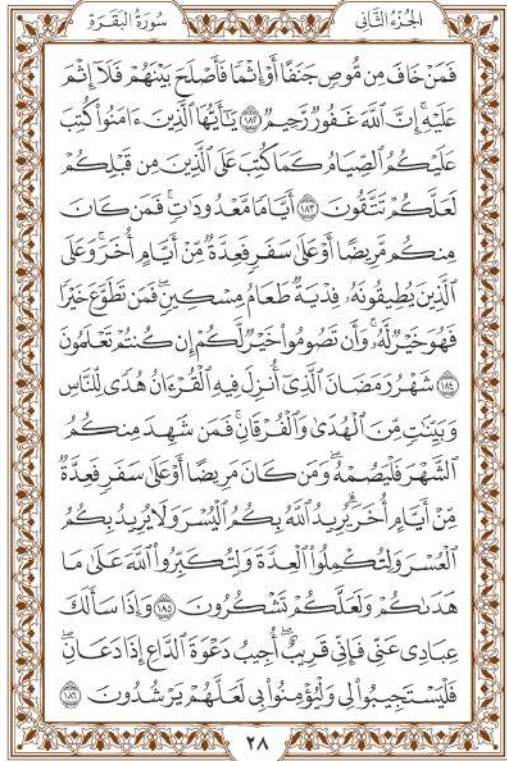 الجُزْءُ الثَّانِي
سُورَةُ البَقَرَةِ
فَمَنْ خَافَ مِن مُّوصٖ جَنَفًا أَوۡ إِثۡمٗا فَأَصۡلَحَ بَيۡنَهُمۡ فَلَآ إِثۡمَ
عَلَيۡهِۚ إِنَّ ٱللَّهَ غَفُورٞ رَّحِيمٞ ١٨٢ يَٰٓأَيُّهَا ٱلَّذِينَ ءَامَنُواْ كُتِبَ
عَلَيۡكُمُ ٱلصِّيَامُ كَمَا كُتِبَ عَلَى ٱلَّذِينَ مِن قَبۡلِكُمۡ
لَعَلَّكُمۡ تَتَّقُونَ ١٨٣ أَيَّامٗا مَّعۡدُودَٰتٖۚ فَمَن كَانَ
مِنكُم مَّرِيضًا أَوۡ عَلَىٰ سَفَرٖ فَعِدَّةٞ مِّنۡ أَيَّامٍ أُخَرَۚ وَعَلَى
ٱلَّذِينَ يُطِيقُونَهُۥ فِدۡيَةٞ طَعَامُ مِسۡكِينٖۖ فَمَن تَطَوَّعَ خَيۡرٗا
فَهُوَ خَيۡرٞ لَّهُۥۚ وَأَن تَصُومُواْ خَيۡرٞ لَّكُمۡ إِن كُنتُمۡ تَعۡلَمُونَ
١٨٤ شَهۡرُ رَمَضَانَ ٱلَّذِيٓ أُنزِلَ فِيهِ ٱلۡقُرۡءَانُ هُدٗى لِّلنَّاسِ
وَبَيِّنَٰتٖ مِّنَ ٱلۡهُدَىٰ وَٱلۡفُرۡقَانِۚ فَمَن شَهِدَ مِنكُمُ
ٱلشَّهۡرَ فَلۡيَصُمۡهُۖ وَمَن كَانَ مَرِيضًا أَوۡ عَلَىٰ سَفَرٖ فَعِدَّةٞ
مِّنۡ أَيَّامٍ أُخَرَۗ يُرِيدُ ٱللَّهُ بِكُمُ ٱلۡيُسۡرَ وَلَا يُرِيدُ بِكُمُ
ٱلۡعُسۡرَ وَلِتُكۡمِلُواْ ٱلۡعِدَّةَ وَلِتُكَبِّرُواْ ٱللَّهَ عَلَىٰ مَا
هَدَىٰكُمۡ وَلَعَلَّكُمۡ تَشۡكُرُونَ ١٨٥ وَإِذَا سَأَلَكَ
عِبَادِي عَنِّي فَإِنِّي قَرِيبٌۖ أُجِيبُ دَعۡوَةَ ٱلدَّاعِ إِذَا دَعَانِۖ
فَلۡيَسۡتَجِيبُواْ لِي وَلۡيُؤۡمِنُواْ بِي لَعَلَّهُمۡ يَرۡشُدُونَ ١٨٦
٢٨